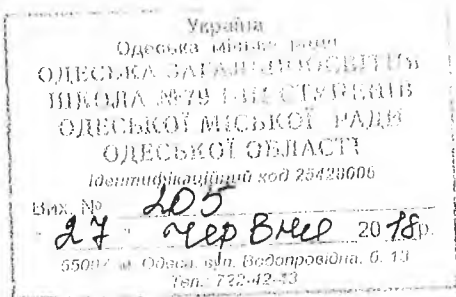 Україна
Одеська міська рада
ОДЕСЬКА ЗАГАЛЬНООСВІТНЯ
ШКОЛА №79 І-ІІІ СТУПЕНІВ
ОДЕСЬКОЇ МІСЬКОЇ РАДИ
ОДЕСЬКОЇ ОБЛАСТІ
Ідентифікаційний код 25428006
Вих. № 205
" 27 " червня 2018р.
м. Одеса, вул. Водопровідна, б. 13
Тел.: 722-42-13